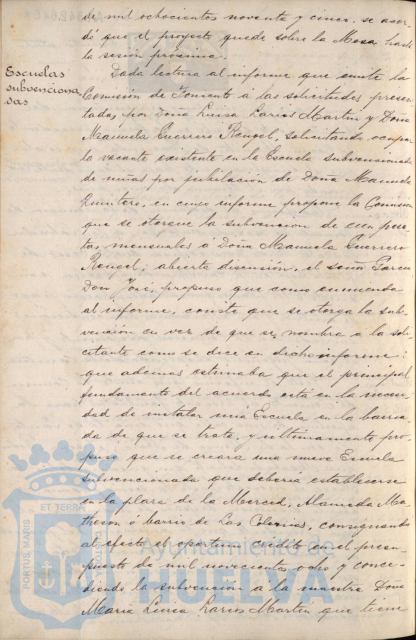 de mil ochocientos noventa y cinco, se acor-
dó que el proyecto quede sobre la Mesa hasta
la sesión próxima.
Escuelas
subvenciona
das
Dada lectura al informe que emite la
Comisión de Fomento a las solicitudes presen-
tadas por Doña Luisa Larios Martin y Doña
Manuela Guerrero Rengel, solicitando ocupar
la vacante existente en la Escuela subvencionada
de niñas por jubilación de Doña Manuela
Quintero, en cuyo informe propone la Comisión
que se otorgue la subvención de cien pese-
tas mensuales á Doña Manuela Guerrero
Rengel; abierta discusión, el señor García
Don José, propuso que como enmienda
al informe, conste que se otorga la sub-
vención en vez de que se nombra a la soli-
citante como se dice en dicho informe:
que además estimaba que el principal
fundamento del acuerdo está en la necesi-
dad de instalar una Escuela en la barria-
da de que se trata, y últimamente pro-
puso que se creara una nueva Escuela
subvencionada que debería establecerse
en la plaza de la Merced, Alameda Ma-
theson o barrio de Las Colonias, consignando
al efecto el oportuno crédito en el presu-
puesto de mil novecientos ocho y conce-
diendo la subvención a la maestra Doña
María Luisa Larios Martin que tiene
PORTUS MARIS
ET TERRÆ
Ayuntamiento de
HUELVA